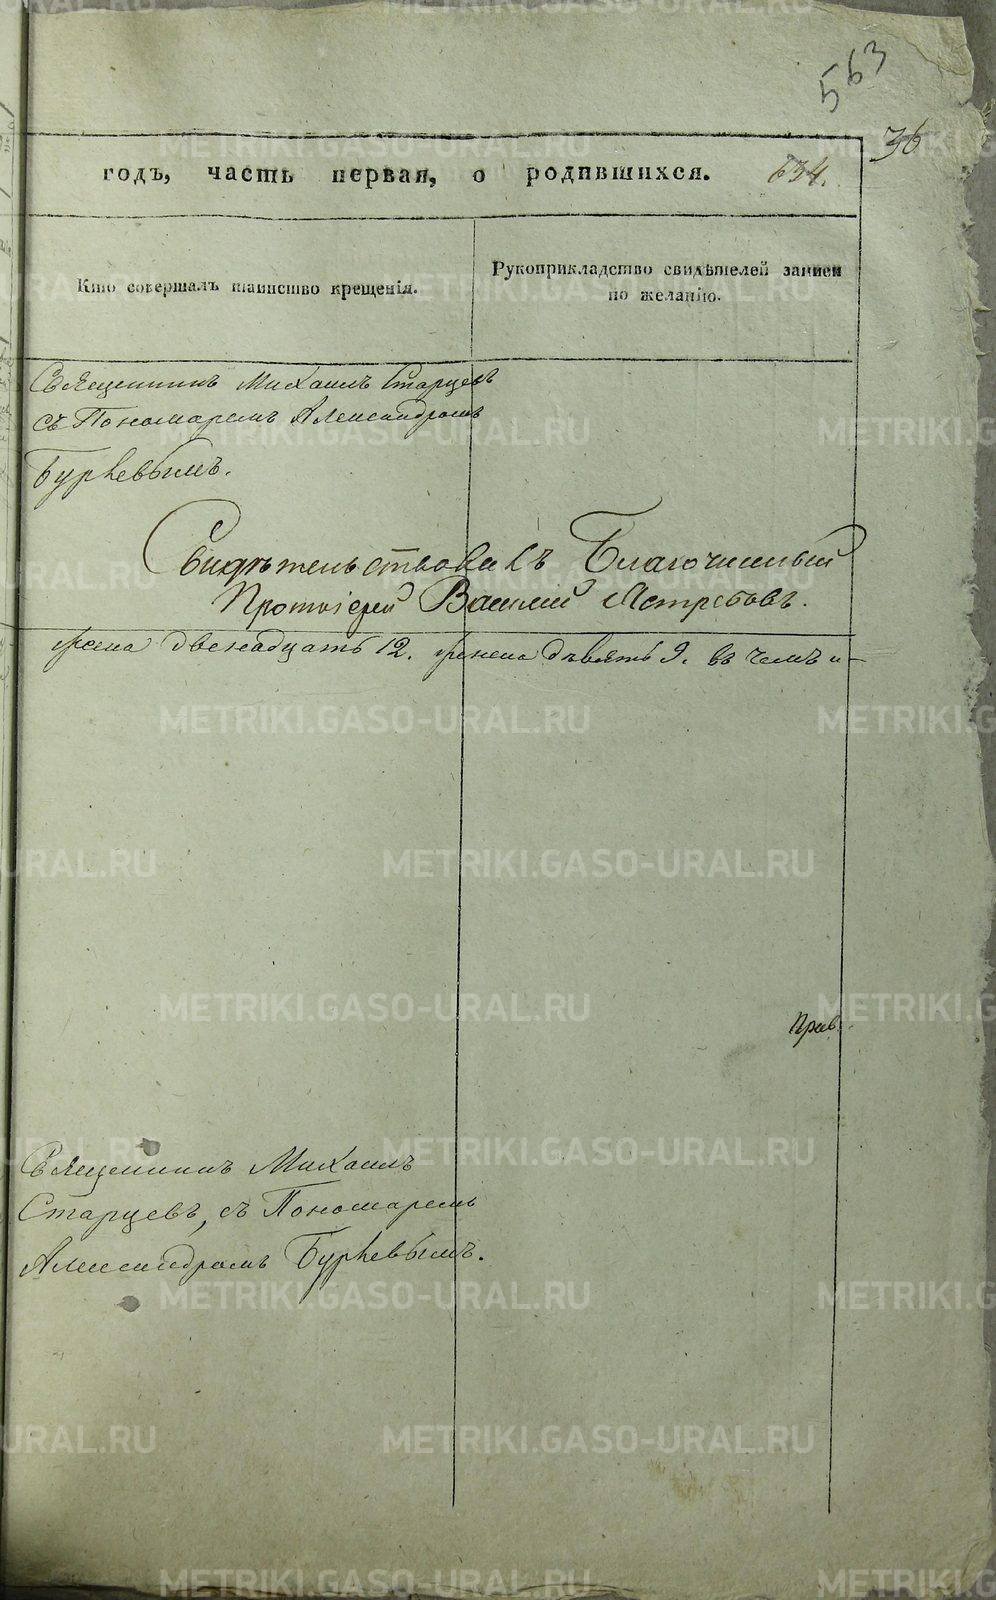 563
36
годъ, часть первая, о родившихся. 634.
Кто совершалъ таинство крещенія.
Рукоприкладство свидѣтелей записи
по желанію.
Священникъ Михаилъ Старцевъ
съ Пономаремъ Александромъ
Бурќевымъ.
Свидѣтельствовалъ Благочинный
Протоіерей Василий Ястребовъ.
двенадцать 12. девять 9. въ чемъ и
Священникъ Михаилъ
Старцевъ, съ Пономаремъ
Александромъ
METRIKI.GASO-URAL.RU